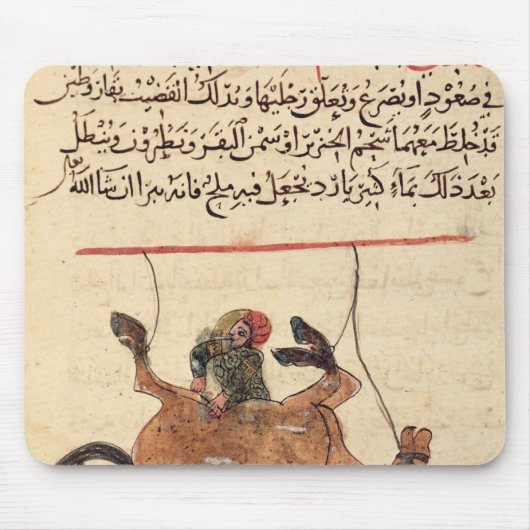 في صعود او يصرع وتعلق رجليها ويدلك القضيب بقار وطين
قد خلط معهما شحم الخنزير او سمن البقر ونطرون وينطل
بعد ذلك بماء كثير بارد يجعل فيه ملح فانه يبرا ان شا الله تعالى